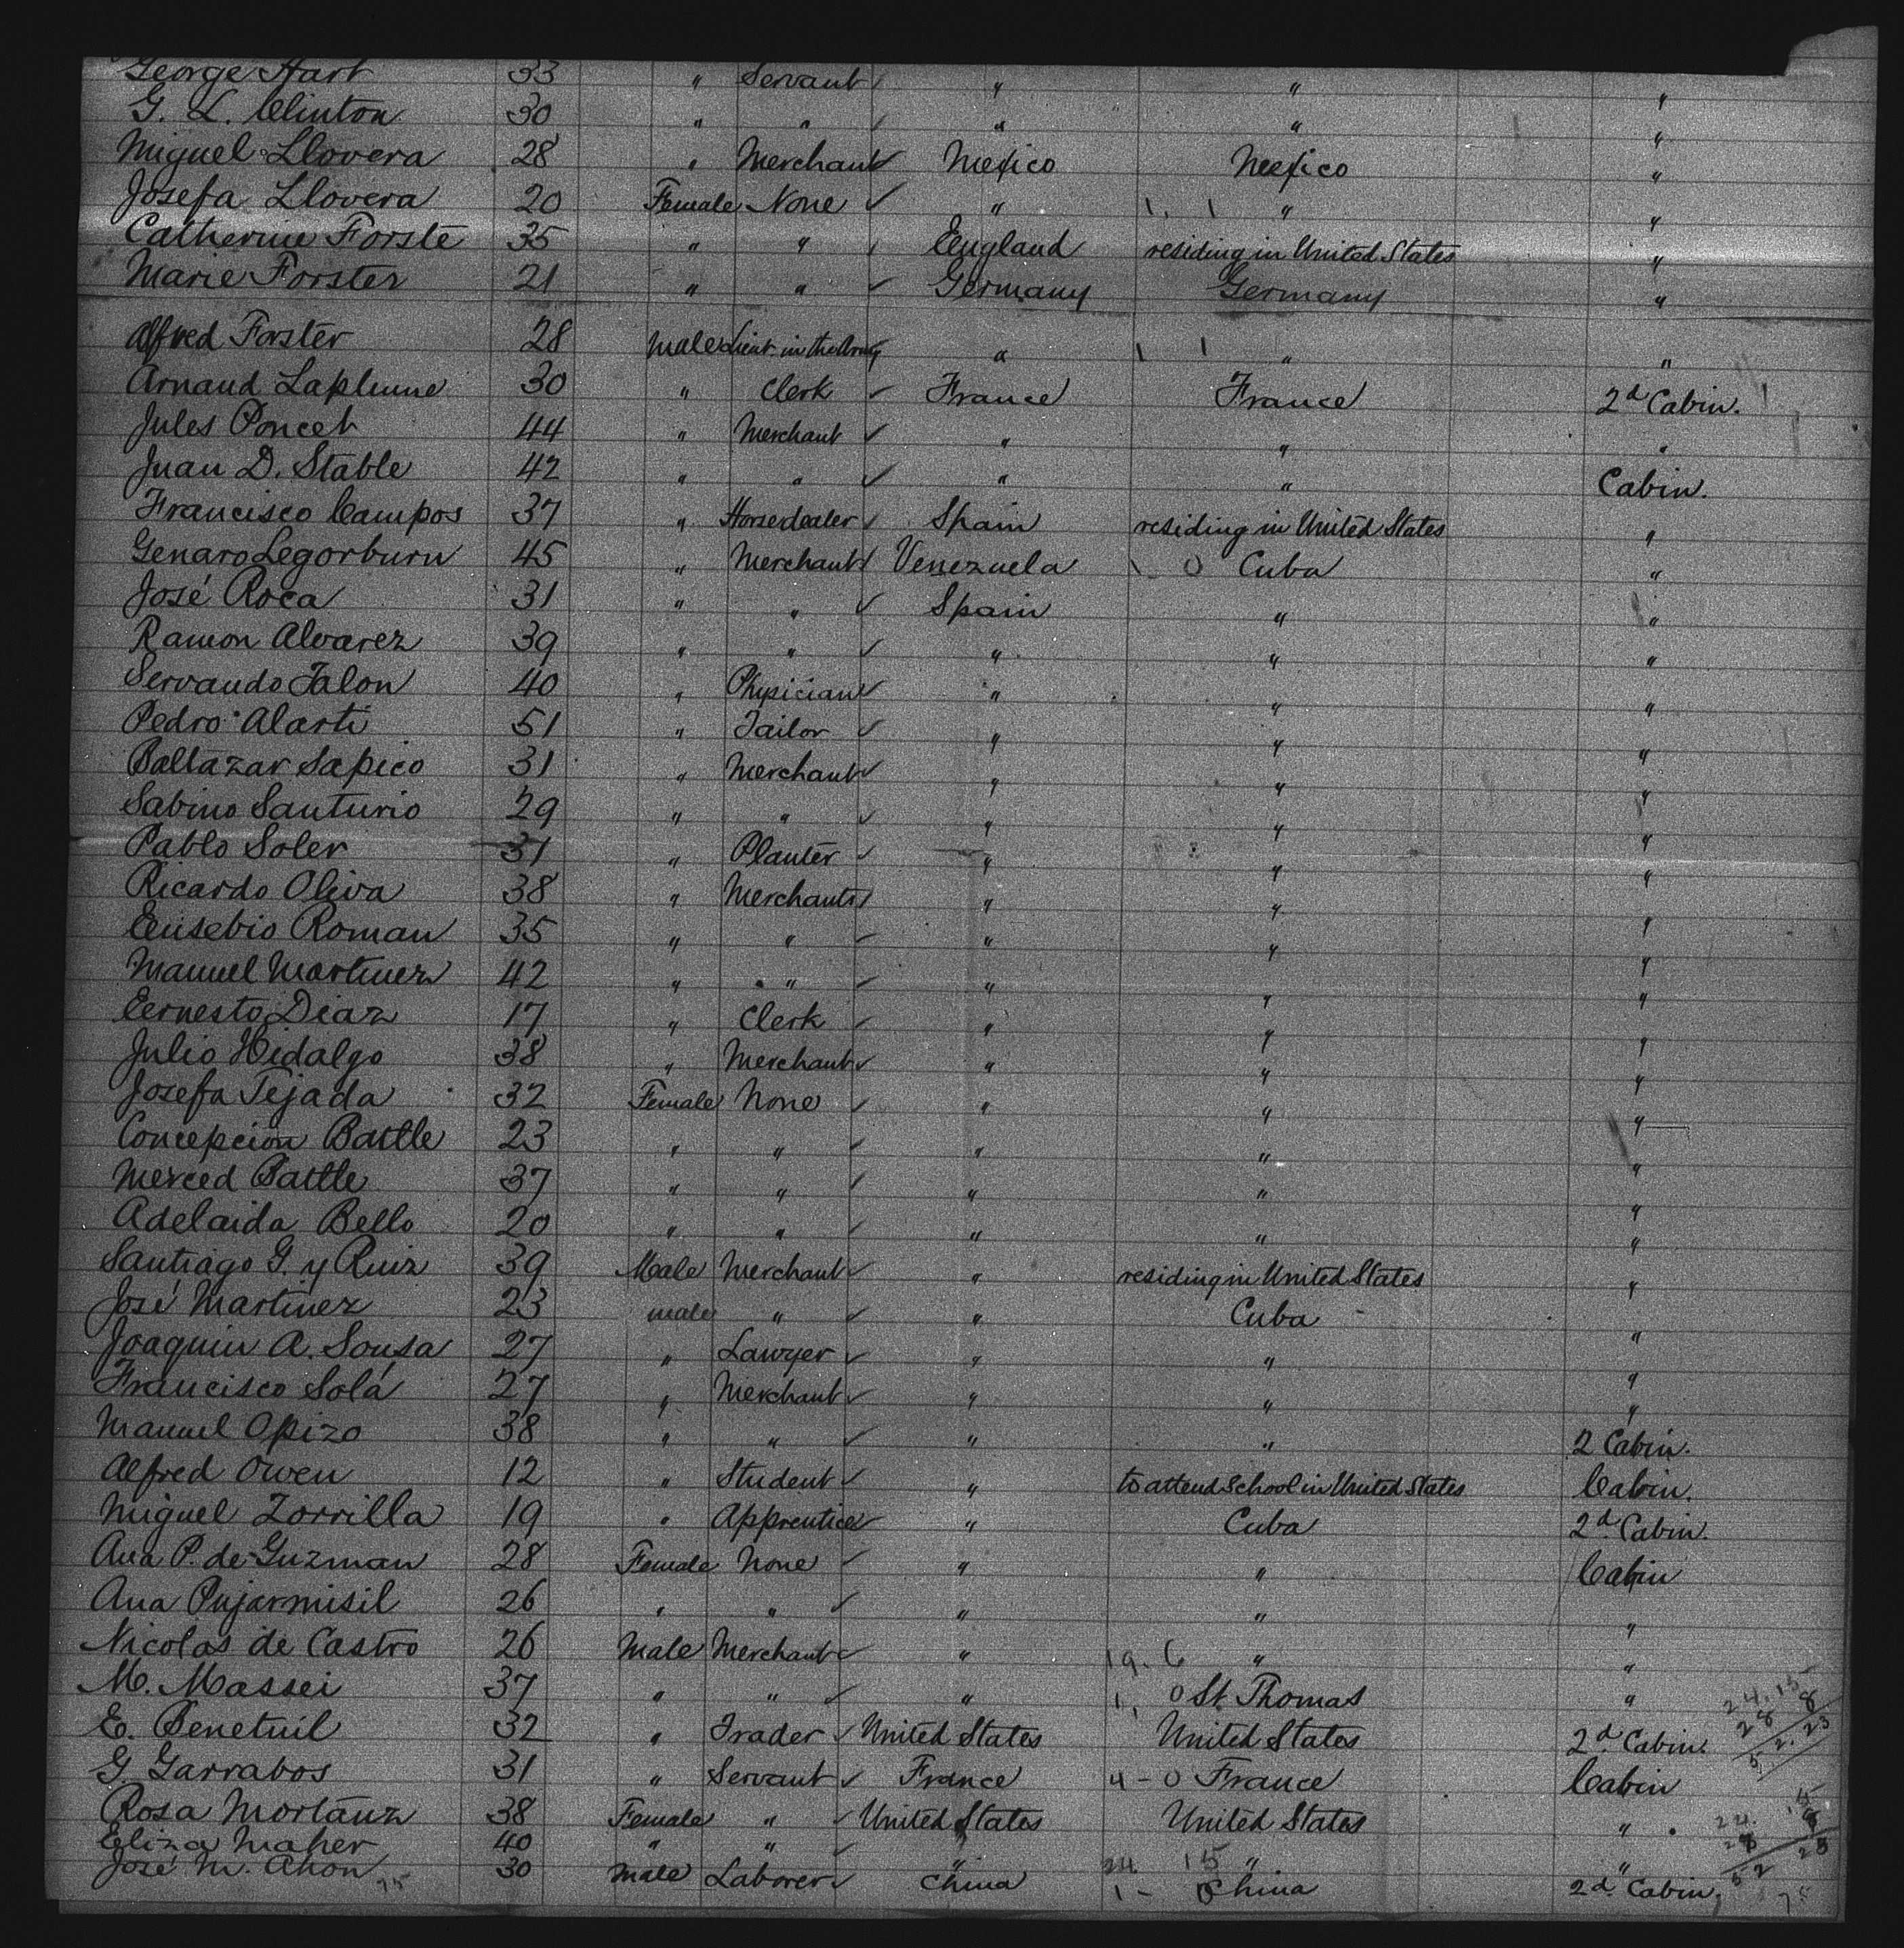 George Hart 33 " Servant " " "
G. L. Clinton 30 " " " " "
Miguel Llovera 28 " Merchant Mexico Mexico "
Josefa Llovera 20 Female None " 1. 1 " "
Catherine Forste 35 " " England residing in United States "
Marie Forster 21 " " Germany Germany "
Alfred Forster 28 Male Lieut. in the Army " 1 1 " "
Arnaud Laplume 30 " Clerk France France 2d Cabin.
Jules Poncet 44 " Merchant " " "
Juan D. Stable 42 " " " " Cabin.
Francisco Campos 37 " Horsedealer Spain residing in United States "
Genaro Legorburu 45 " Merchant Venezuela 1 - 0 Cuba "
José Roca 31 " " Spain " "
Ramon Alvarez 39 " " " " "
Servando Talon 40 " Physician " " "
Pedro Alarti 51 " Tailor " " "
Baltazar Sapico 31 " Merchant " " "
Sabino Santurio 29 " " " " "
Pablo Soler 31 " Planter " " "
Ricardo Oliva 38 " Merchant " " "
Eusebio Roman 35 " " " " "
Manuel Martinez 42 " " " " "
Ernesto Diaz 17 " Clerk " " "
Julio Hidalgo 38 " Merchant " " "
Josefa Tejada 32 Female None " " "
Concepcion Batlle 23 " " " " "
Merced Batlle 37 " " " " "
Adelaida Bello 20 " " " " "
Santiago G. y Ruiz 39 Male Merchant " residing in United States "
José Martinez 23 male " " Cuba "
Joaquin A. Sousa 27 " Lawyer " " "
Francisco Solá 27 " Merchant " " "
Manuel Opizo 38 " " " " 2 Cabin.
Alfred Owen 12 " Student " to attend School in United States Cabin.
Miguel Zorrilla 19 " Apprentice " Cuba 2d Cabin.
Ana P. de Guzman 28 Female None " " Cabin
Ana Pujarmisil 26 " " " " "
Nicolas de Castro 26 Male Merchant " 19. 6 " "
M. Massei 37 " " " 1, 0 St. Thomas "
E. Benetuil 32 " Trader United States United States 2d Cabin.
G. Garrabos 31 " Servant France 4 - 0 France Cabin
Rosa Mortanz 38 Female " United States United States "
Eliza Maher 40 " " " 24 15 " "
José M. Ahon 30 Male Laborer China 1 - 0 China 2d Cabin.